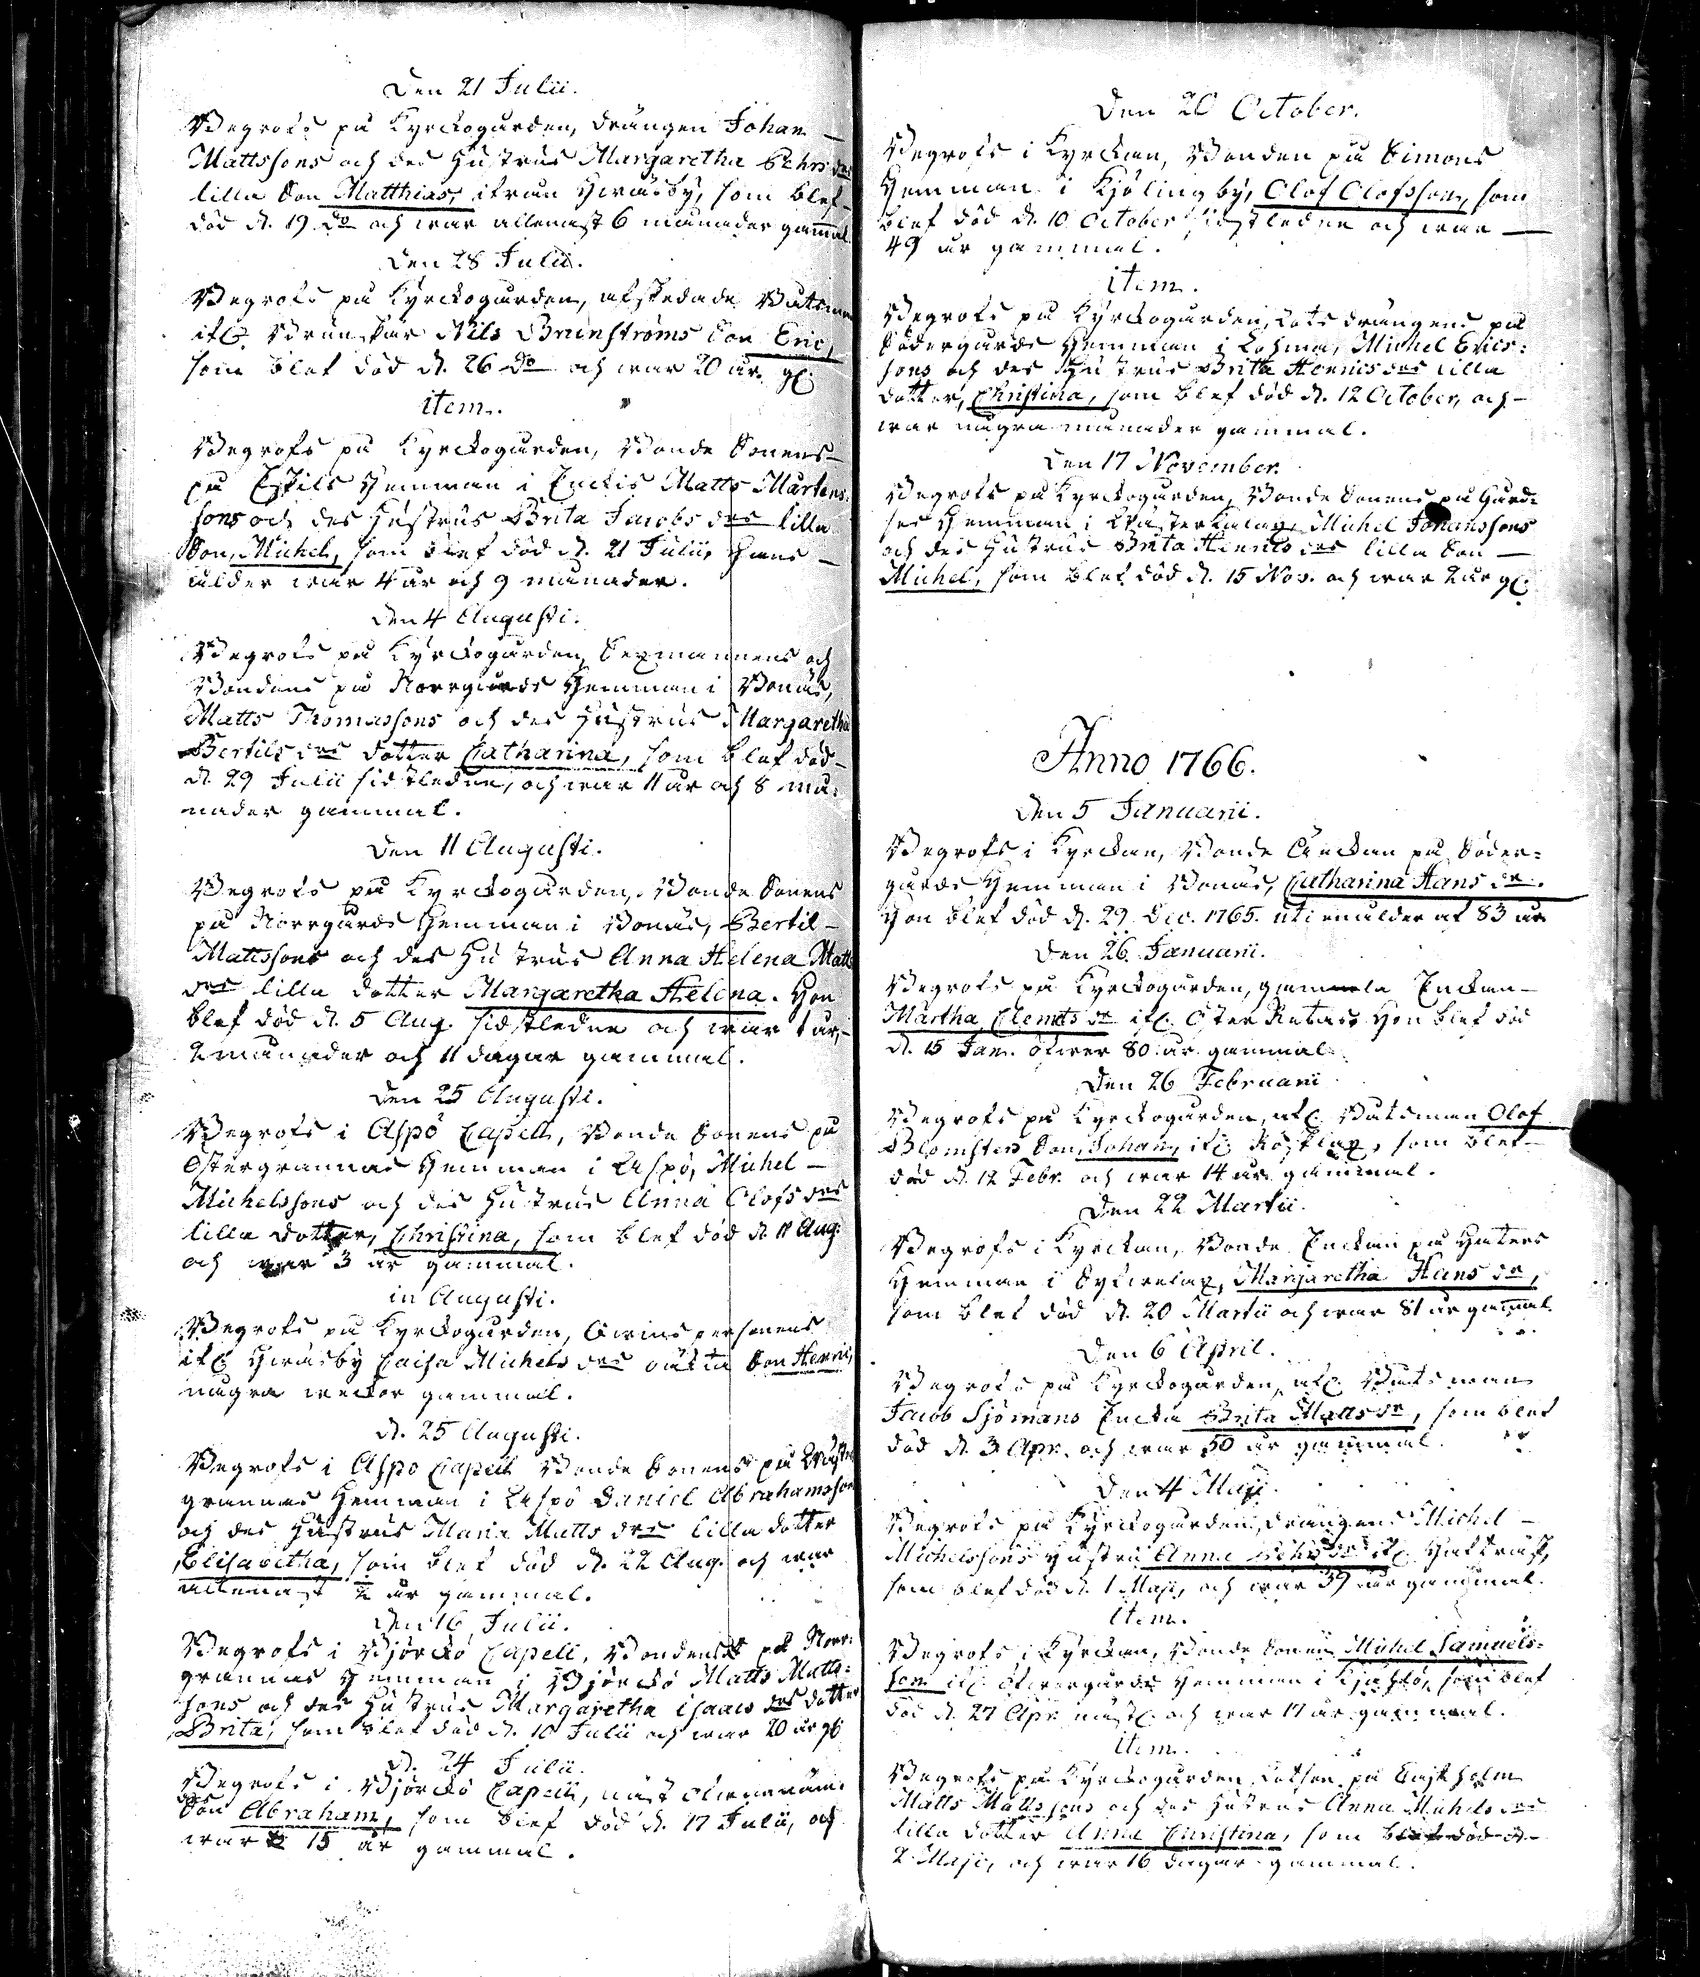 Den 21 Julii.
Begrofs på Kyrckogården, drängen Johan
Mattssons och des Hustrus Margaretha Pehrs drs
lilla Son Matthias, ifrån Hwäsby, som blef
död d. 19 do och war allenast 6 månader gammal.
Den 28 Julii.
Begrofs på Kyrckogården, afskedade Båtsman
if. Brunskär Nils Brunströms Son Eric,
som blef död d. 26 do och war 20 år gl.
item.
Begrofs på Kyrckogården, Bonde Sonens
på Eskils Hemman i Enckis Matts Mårtens
sons och des Hustrus Brita Jacobs drs lilla
Son, Michel, som blef död d. 21 Julii, Hans
ålder war 4 år och 9 månader.
Den 4 Augusti.
Begrofs på Kyrckogården, Sexmannens och
Bondens på Norrgårds Hemman i Bonäs,
Matts Thomassons och des Hustrus Margaretha
Bertils drs dotter Catharina, som blef död
d. 29 Julii sidstledne, och war 11 år och 8 må-
nader gammal.
Den 11 Augusti.
Begrofs på Kyrckogården, Bonde Sonens
på Norrgårds Hemman i Bonäs, Bertil
Mattssons och des Hustrus Anna Helena Matts
drs lilla dotter Margaretha Helena. Hon
blef död d. 5 Aug. sidstledne och war 1 år,
2 månader och 11 dagar gammal.
Den 25 Augusti.
Begrofs i Aspö Capell, Bonde Sonens på
Östergrannas Hemman i Aspö, Michel
Michelssons och des Hustrus Anna Olofs drs
lilla dotter, Christina, som blef död d. 11 Aug.
och war 3 år gammal.
in Augusti.
Begrofs på Kyrckogården, Qwins personens
if. Hwäsby Caisa Michels drs oäkta Son Henric,
några weckor gammal.
d. 25 Augusti.
Begrofs i Aspö Capell Bonde Sonens på Wäster
grannas Hemman i Aspö Daniel Abrahamsson
och des Hustrus Maria Matts drs lilla dotter
Elisabetha, som blef död d. 22 Aug. och war
allenast ½ år gammal.
Den 16 Julii.
Begrofs i Björckö Capell, Bondens på Norr-
grannas Hemman i Björckö Matts Matts-
sons och des Hustrus Margaretha Isaacs drs dotter
Brita, som blef död d. 10 Julii och war 20 år gl.
D. 24 Julii.
Begrofs i Björckö Capell, näst ofwannäm.
des Son Abraham, som blef död d. 17 Julii, och
war 15 år gammal.
Den 20 October.
Begrofs i Kyrckan, Bonden på Simons
Hemman i Kjölingby, Olof Olofsson, som
blef död d. 10 October sidstledne och war
49 år gammal.
item.
Begrofs på Kyrckogården, Lots drängens på
Södergårds Hemman i Lohma, Michel Erics-
sons och des Hustrus Brita Henrics drs lilla
dotter, Christina, som blef död d. 12 October, och
war några månader gammal.
Den 17 November.
Begrofs på Kyrckogården, Bonde Sonens på
Hemman i Michel Johanssons
och des Hustrus Brita Henrics drs lilla Son
Michel, som blef död d. 15 Nov. och war 2 år gl.
Anno 1766.
Den 5 Januarii.
Begrofs i Kyrckan, Bonde Enckan på Söder-
gårds Hemman i Bonäs, Catharina Hans dr.
Hon blef död d. 29 Dec. 1765. uti en ålder af 83 år
Den 26 Januarii.
Begrofs på Kyrckogården, gammala Enckan
Martha Clemets dr if. Öster Retais Hon blef död
d. 15 Jan. öfwer 80 år gammal.
Den 26 Februarii
Begrofs på Kyrckogården, af. Båtsman Olof
Blomsters Son, Johan, if. Rosklax, som blef
död d. 12 Febr. och war 14 år gammal.
Den 22 Martii.
Begrofs i Kyrckan, Bonde Enckan på
Hemman i Margaretha Hans dr,
som blef död d. 20 Martii och war 81 år gammal.
Den 6 April.
Begrofs på Kyrckogården, af. Båtsman
Jacob Sjömans Encka Brita Matts dr, som blef
död d. 3 Apr. och war 50 år gammal.
Den 4 Maji.
Begrofs på Kyrckogården, drängens Michel
Michelssons Hustru Anna Pehrs dr if.
som blef död d. 1 Maji, och war 39 år gammal.
Item.
Begrofs i Kyrckan, Bonde Sonen Michel Samuels-
son if. Öfwergårds Hemman i som blef
död d. 27 Apr. näst. och war 17 år gammal.
Item.
Begrofs på Kyrckogården, Lotsen på
Matts Mattssons och des Hustrus Anna Michels drs
lilla dotter Anna Christina, som blef död d.
2 Maji, och war 16 dagar gammal.